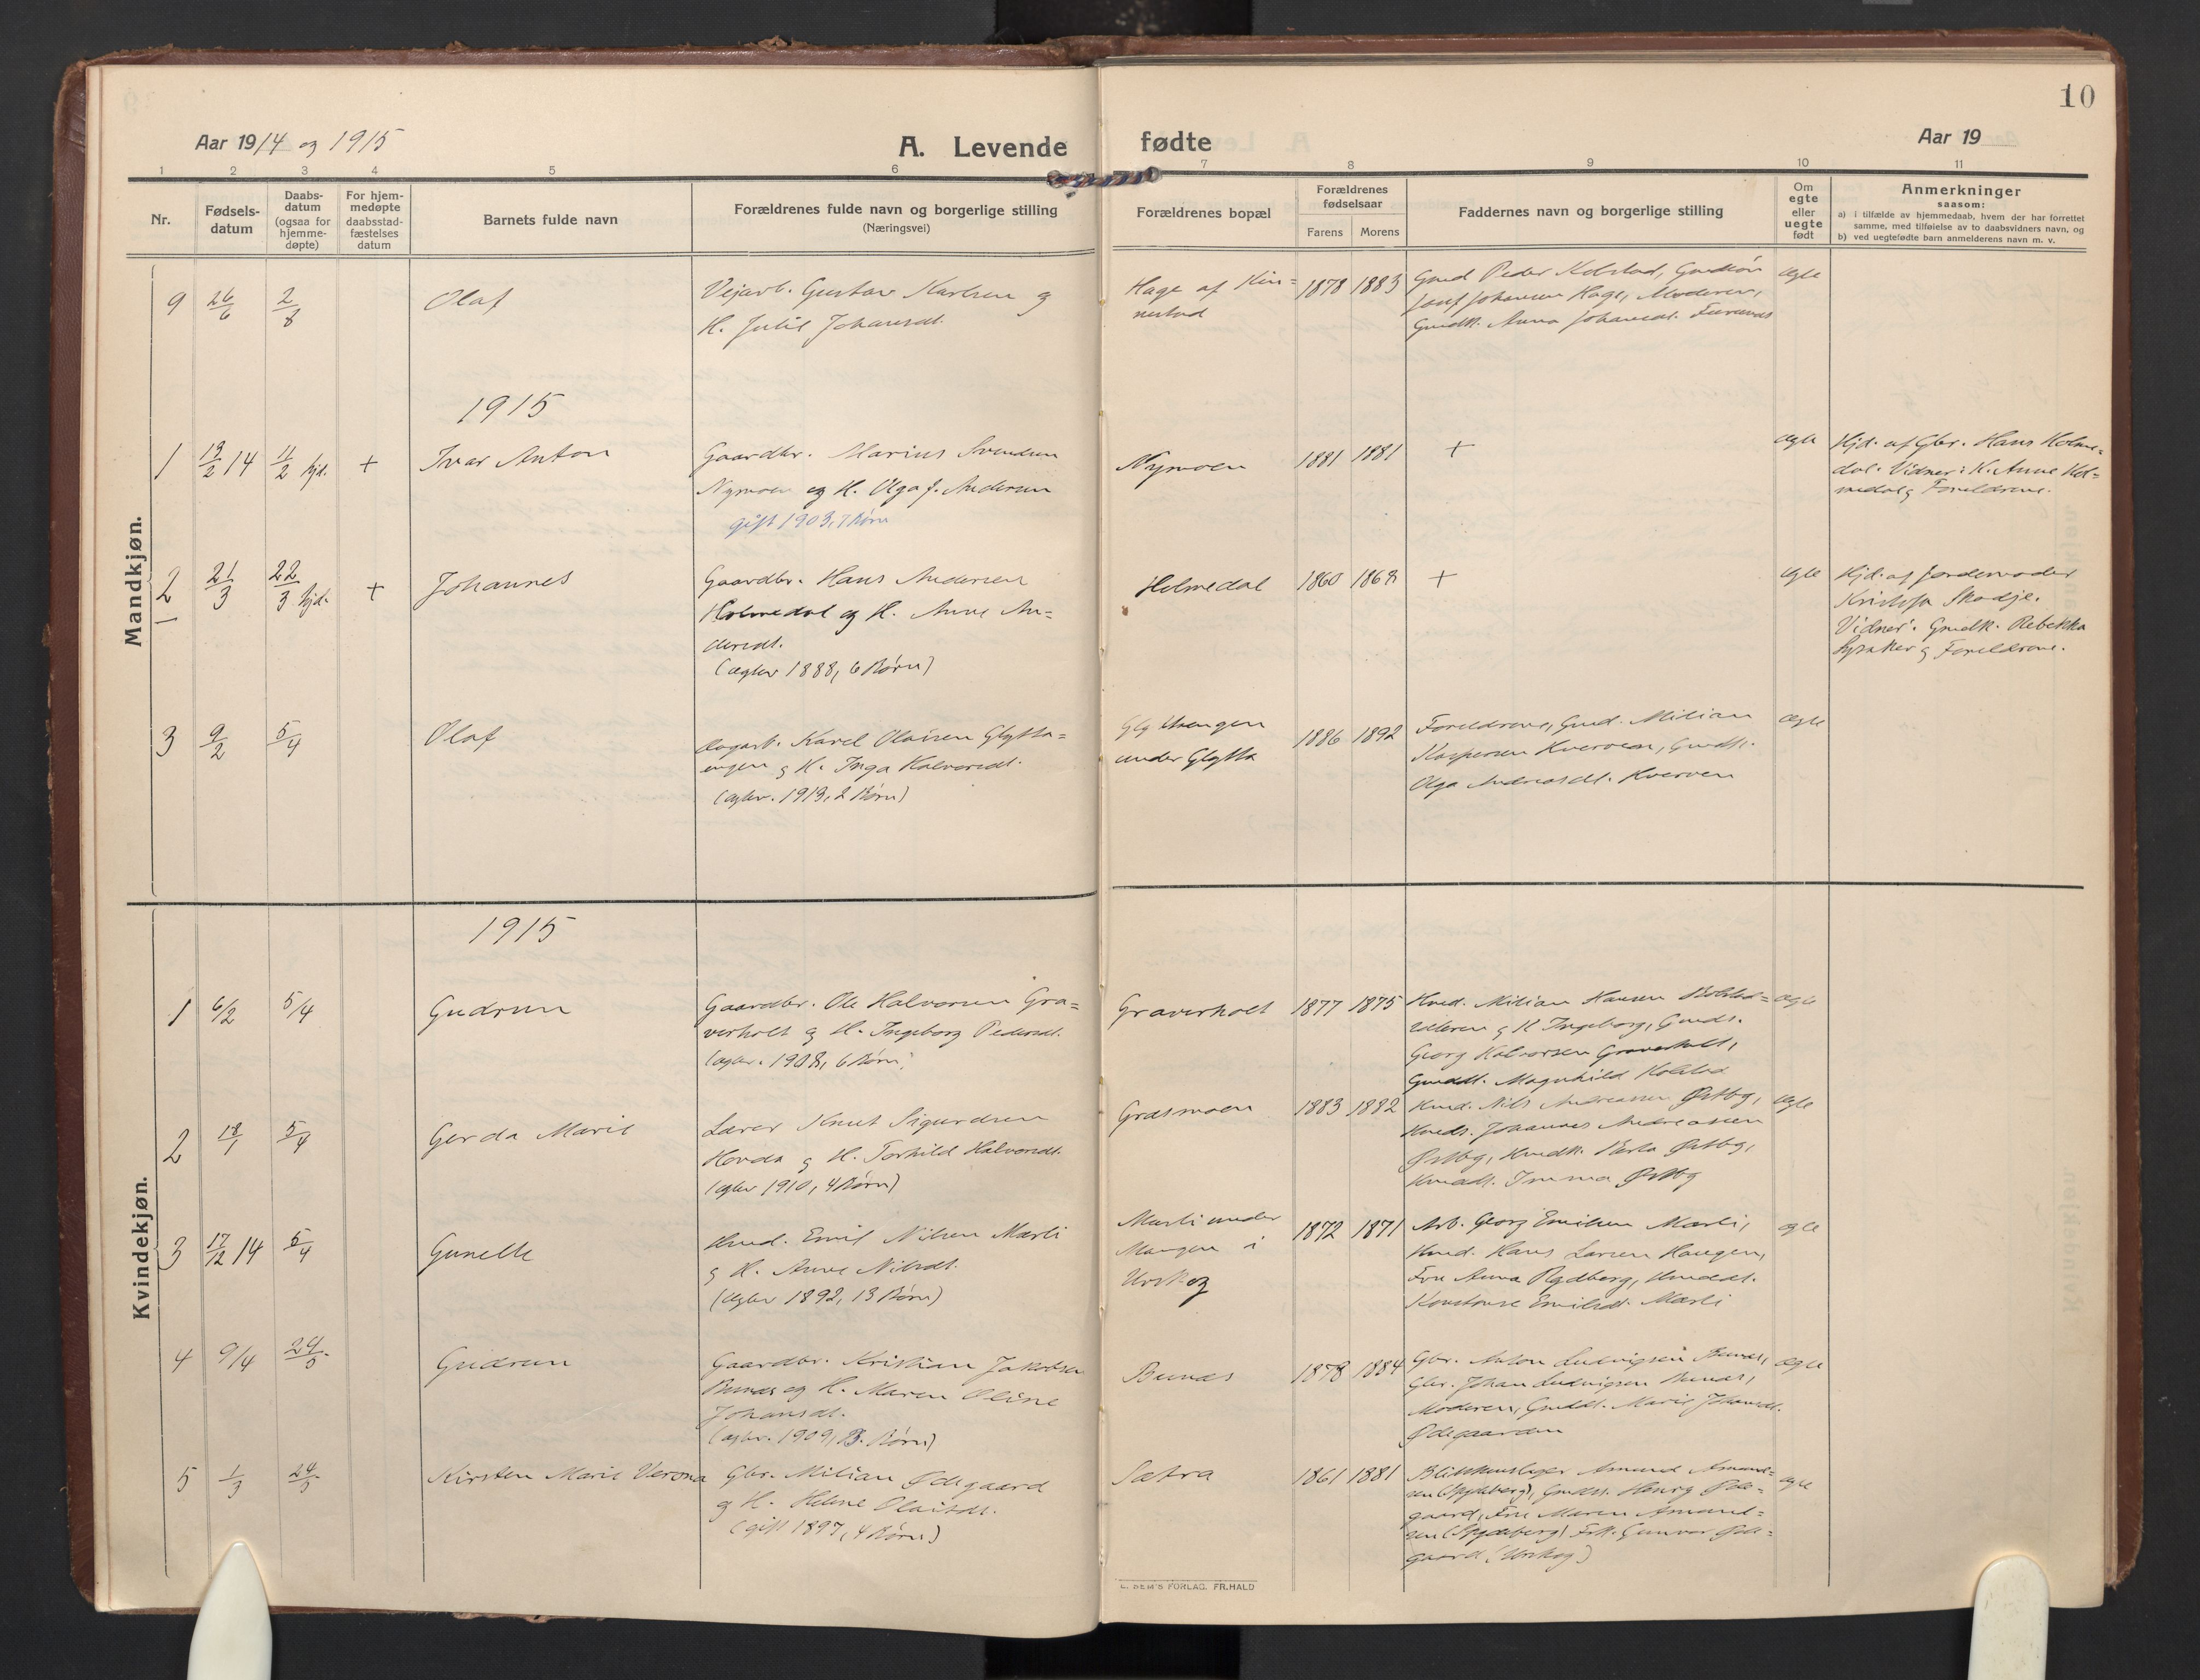 10
Aar 1914 og 1915
A. Levende
fødte
Aar 19
1 2 3 4 5 6 7 8 9 10 11
Nr.
Fødsels-
datum
Daabs-
datum
(ogsaa for
hjemme-
døpte)
For hjem-
medøpte
daabsstad-
fæstelses
datum
Barnets fulde navn
Forældrenes fulde navn og borgerlige stilling
(Næringsvei)
Forældrenes bopæl
Forældrenes
fødselsaar
Farens
Morens
Faddernes navn og borgerlige stilling
Om
egte
eller
uegte
født
Anmerkninger
saasom:
a) i tilfælde av hjemmedaab, hvem der har forrettet
samme, med tilføielse av to daabsvidners navn, og
b) ved uegtefødte barn anmelderens navn m. v.
Mandkjøn.
9 26/6 2/8 Olaf
Vejarb. Gustav Karlsen og
H. Julie Johansdt.
Hage af Kin=
nestad
1878 1883
Gmd Peder Kolstad, Gmdsøn
Johansen Hage, Moderen,
Gmdk. Anna Johansdt. Furunes
ægte
1915
1 19/2 14 11/2 hjd. + Ivar Anton
Gaardbr. Marius Svendsen
Nymoen og H. Olga J. Andersen
gift 1903, 7 Børn
Nymoen
1881 1881
+
ægte
Hjd. af Gbr. Hans Holme=
dal. Vidner: K. Anne Hol=
medal og Forældrene.
2 21/3 22/3 hjd. + Johannes
1
Gaardbr. Hans Andersen
Holmedal og H. Anne An=
dersdt.
(ægtev 1888, 6 Børn)
Holmedal
1860 1868
+
ægte
Hjd. af Jordemoder
Skodje.
Vidner: Gmdk. Rebekka
og Forældrene.
3 9/2 5/4 Olaf
Karel Olaisen Glytta=
engen og H. Inga Halvorsdt.
(ægtev. 1913, 2 Børn)
under Glytta
1886 1892
Forældrene, Gmd. Milian
Kaspersen Kverven, Gmdk.
Olga Andreasdt. Kverven
ægte
Kvindekjøn.
1915
1 6/2 5/4 Gudrun
Gaardbr. Ole Halvorsen Gra=
verholt og H. Ingeborg Pedersdt.
(ægtev. 1908, 6 Børn)
Graverholt
1877 1875
Hmd. Milian Hansen
og H Ingeborg, Gmds.
Georg Halvorsen Graverholt,
Gmddt. Magnhild Kolstad
ægte
2 18/1 5/4 Gerda Marie
Lærer Knut Sigurdsen
Hovda og H. Torhild Halvorsdt.
(ægtev 1910, 4 Børn)
Græsmoen
1883 1882
Hmd. Nils Andreassen Østby,
Hmds. Johannes Andreassen
Østby, Hmdk. Berta Østby,
Hmddt. Imma Østby
ægte
3 17/12 14 5/4 Gunelle
Hmd. Emil Nilsen Mærli
og H. Anne Nilsdt.
(ægtev 1892, 13 Børn)
Mærli under
Mangen i
Urskog
1872 1871
Arb. Georg Emilsen Mærli,
Hmd. Hans Larsen Haugen,
Fru Anna Rydberg, Hmddt.
Konstanse Emilsdt. Mærli
ægte
4 9/4 24/5 Gudrun
Gaardbr. Kristian Jakobsen
Bunes og H. Maren Oline
Johansdt.
(ægtev. 1909, 3. Børn)
Bunes
1878 1884
Gbr. Anton Ludvigsen Bunes,
Gbr. Johan Ludvigsen Bunes,
Moderen, Gmddt. Marie Johansdt.
Ødegaarden
ægte
5 1/3 24/5 Kirsten Marie Verona
Gbr. Milian Ødegaard
og H. Helene Olaisdt.
(gift 1897, 4 Børn)
Sætra
1861 1881
Blikkenslager Amund Amund=
sen (Spydeberg), Gmds. Henry Øde=
gaard, Fru Maren Amund=
sen (Spydeberg) Frk. Gunvor Øde=
gaard (Urskog)
ægte
E. SEM'S FORLAG, FR.HALD